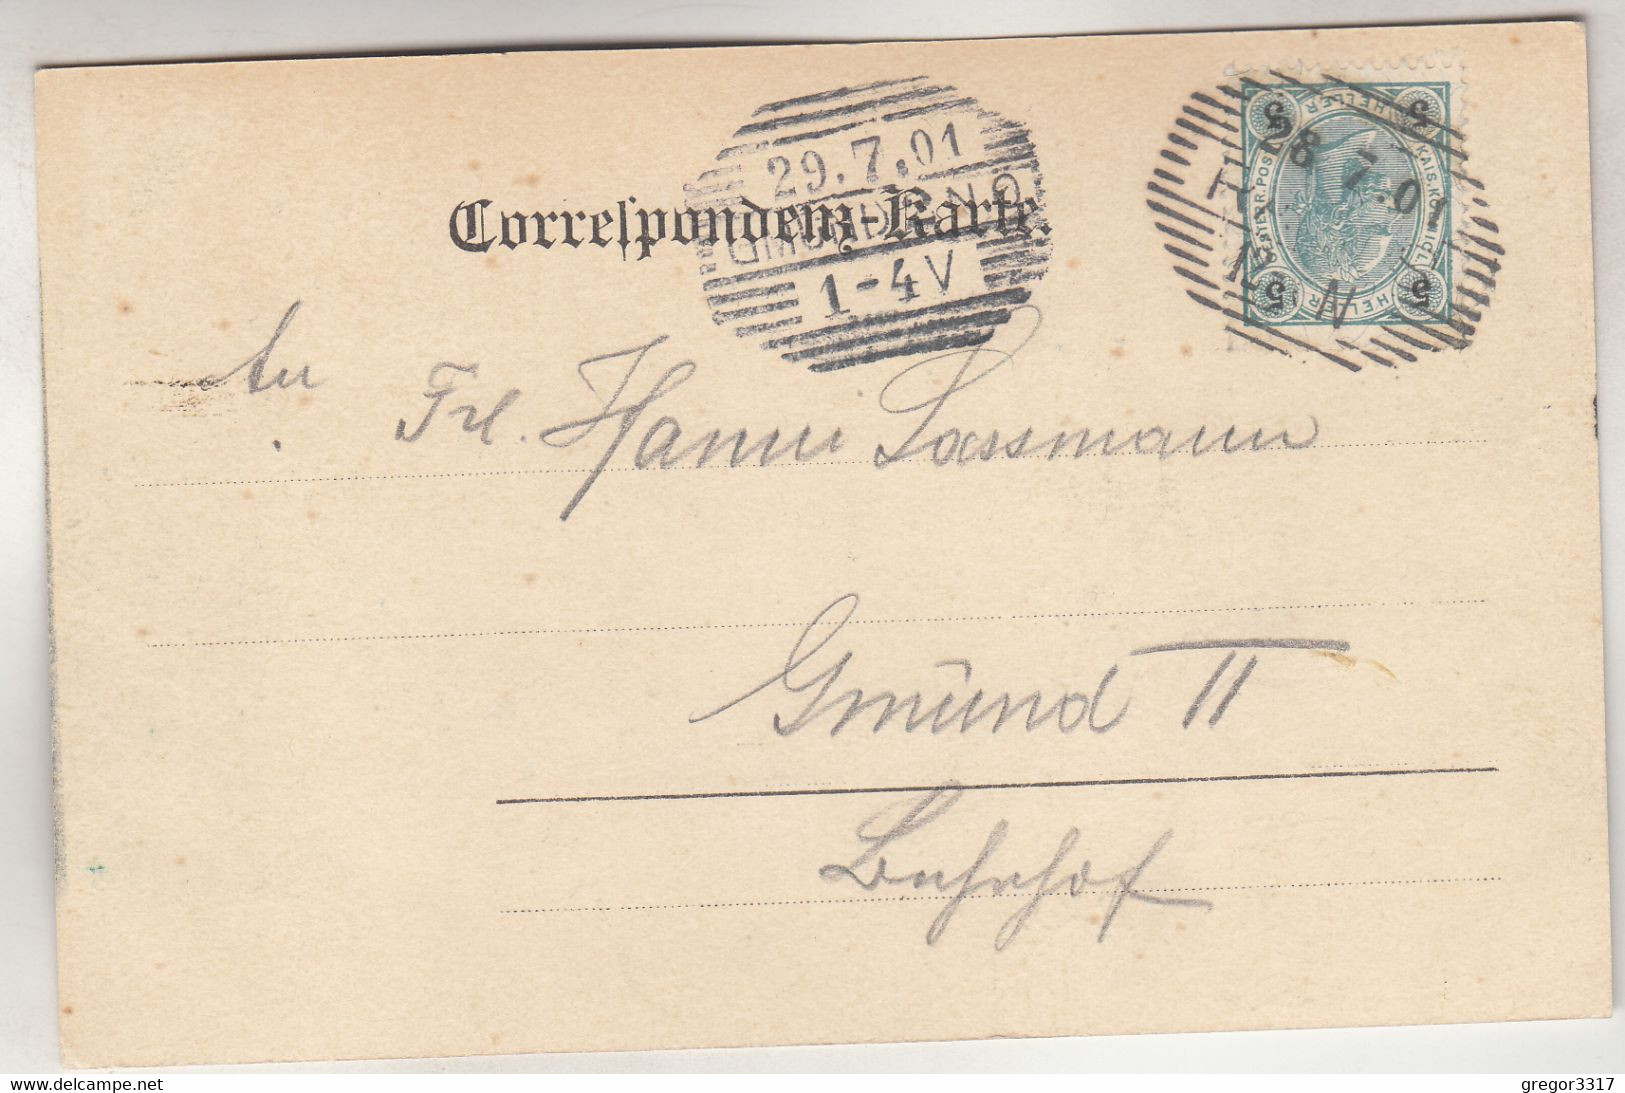 29.7.01
Correſpondenz-Karte.
1-4V
28 7.01
5 HELLER 5
KAIS. KÖNIGL.
5 HELLER 5
An
Frl. Hanni Lassmann
Gmünd II
Bahnhof
www.delcampe.net
gregor3317